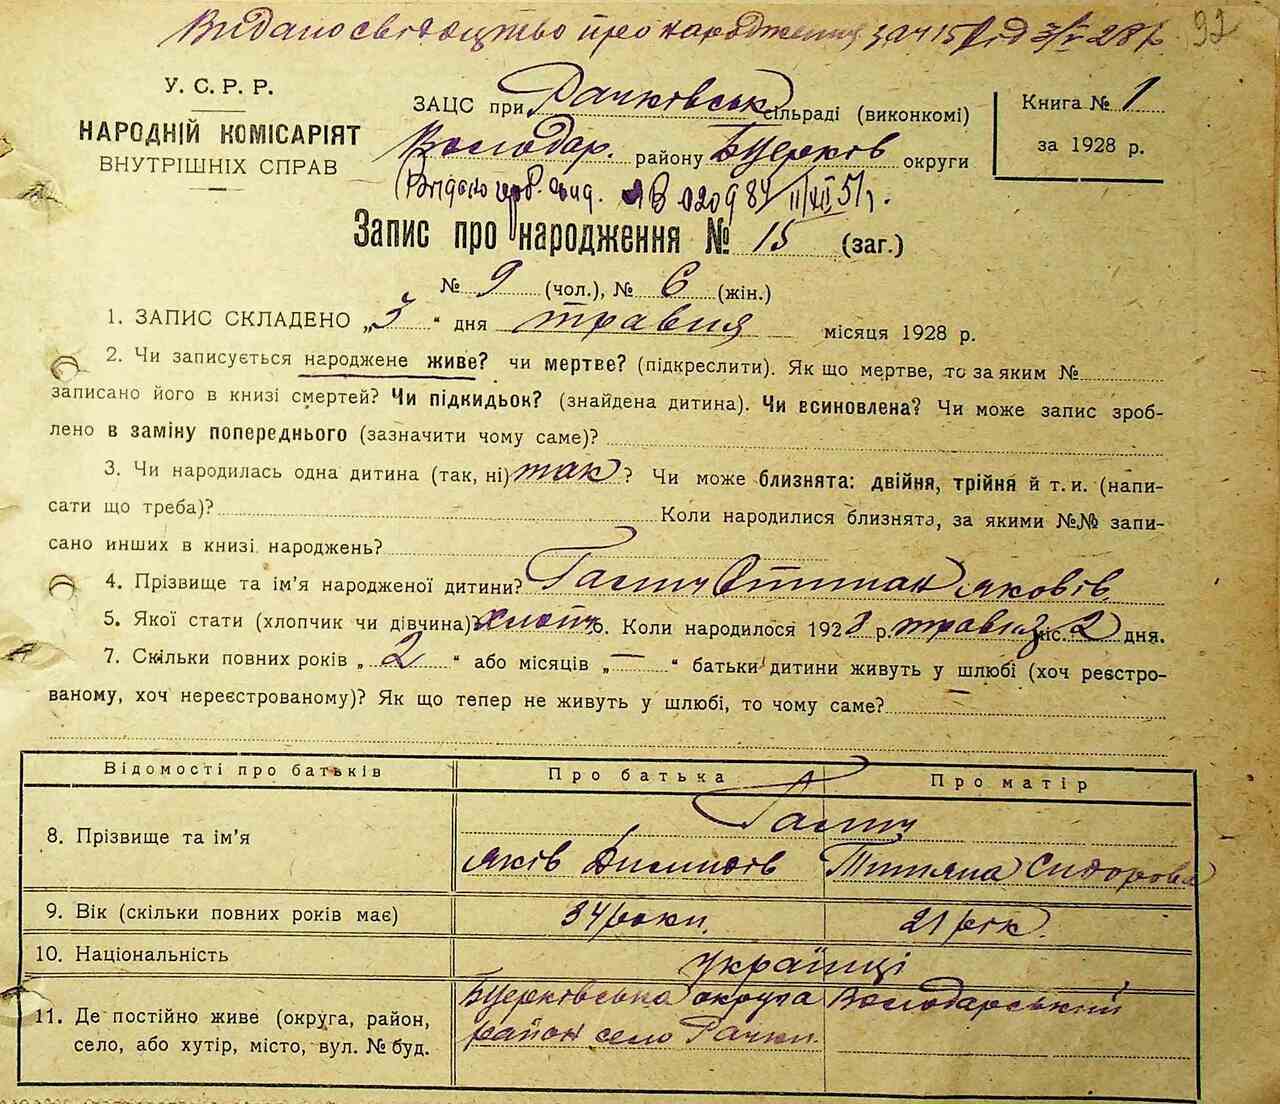 Видано свідоцтво про народження за ч 15 від 3/V 28 р. 92
У. С. Р. Р.
НАРОДНІЙ КОМІСАРІЯТ
ВНУТРІШНІХ СПРАВ
ЗАЦС при Рачковськ сільраді (виконкомі)
Володар. району Бцерков округи
Книга № 1
за 1928 р.
(Видано свід. ЯВ 020984 11/XII 51 р.
Запис про народження № 15 (заг.)
№ 9 (чол.), № 6 (жін.)
1. ЗАПИС СКЛАДЕНО „3“ дня травня місяця 1928 р.
2. Чи записується народжене живе? чи мертве? (підкреслити). Як що мертве, то за яким №
записано його в книзі смертей? Чи підкидьок? (знайдена дитина). Чи всиновлена? Чи може запис зроб-
лено в заміну попереднього (зазначити чому саме)?
3. Чи народилась одна дитина (так, ні) так? Чи може близнята: двійня, трійня й т. и. (напи-
сати що треба)? Коли народилися близнята, за якими №№ запи-
сано инших в книзі народжень?
4. Прізвище та ім’я народженої дитини? Галич Степан Яковів
5. Якої статі (хлопчик чи дівчина)? хлопч 6. Коли народилося 1928 р. травня міс. 2 дня.
7. Скільки повних років „2“ або місяців „—“ батьки дитини живуть у шлюбі (хоч реєстро-
ваному, хоч нереєстрованому)? Як що тепер не живуть у шлюбі, то чому саме? —
Відомості про батьків Про батька Про матір
8. Прізвище та ім’я Галич
Яків Тетяна Сидоровна
9. Вік (скільки повних років має) 34 роки. 21 рік.
10. Національність Українці
11. Де постійно живе (округа, район,
село, або хутір, місто, вул. № буд.
Бцерковська округа Володарський
район село Рачки.